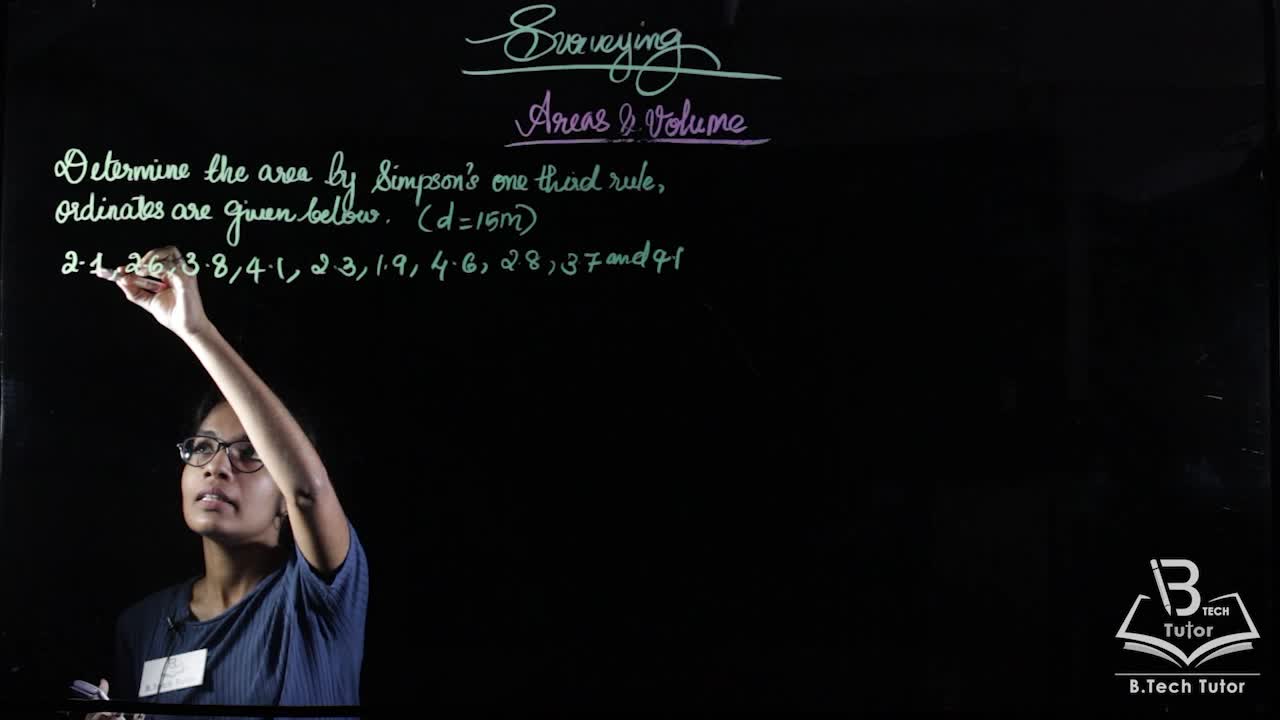 Surveying
Areas & Volume
Determine the area by Simpson's one third rule,
ordinates are given below. (d=15m)
2.1, 2.6, 3.8, 4.1, 2.3, 1.9, 4.6, 2.8, 3.7 and 4.1
B
TECH
Tutor
B.Tech Tutor
B
B.Tech Tutor